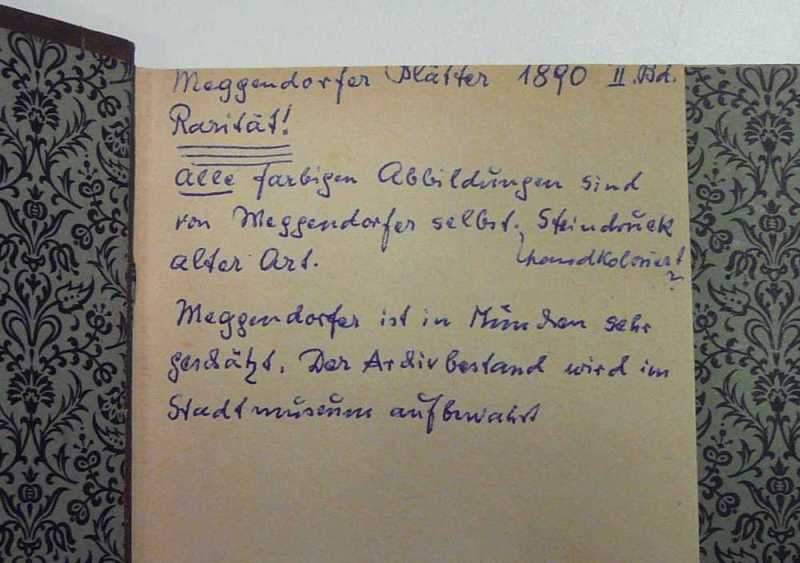 Meggendorfer Blätter 1890 II. Bd.
Rarität!
Alle farbigen Abbildungen sind
von Meggendorfer selbst. Steindruck
alter Art. handkoloriert?
Meggendorfer ist in München sehr
geschätzt. Der Archivbestand wird im
Stadtmuseum aufbewahrt